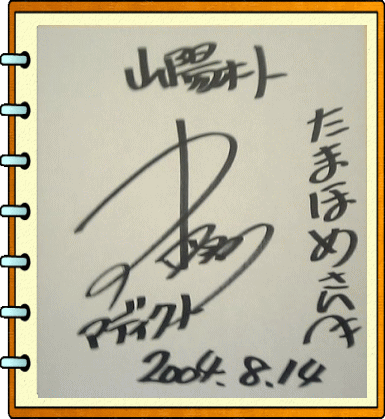 山陽オート
たまほめさんへ
アディクト
2004.8.14